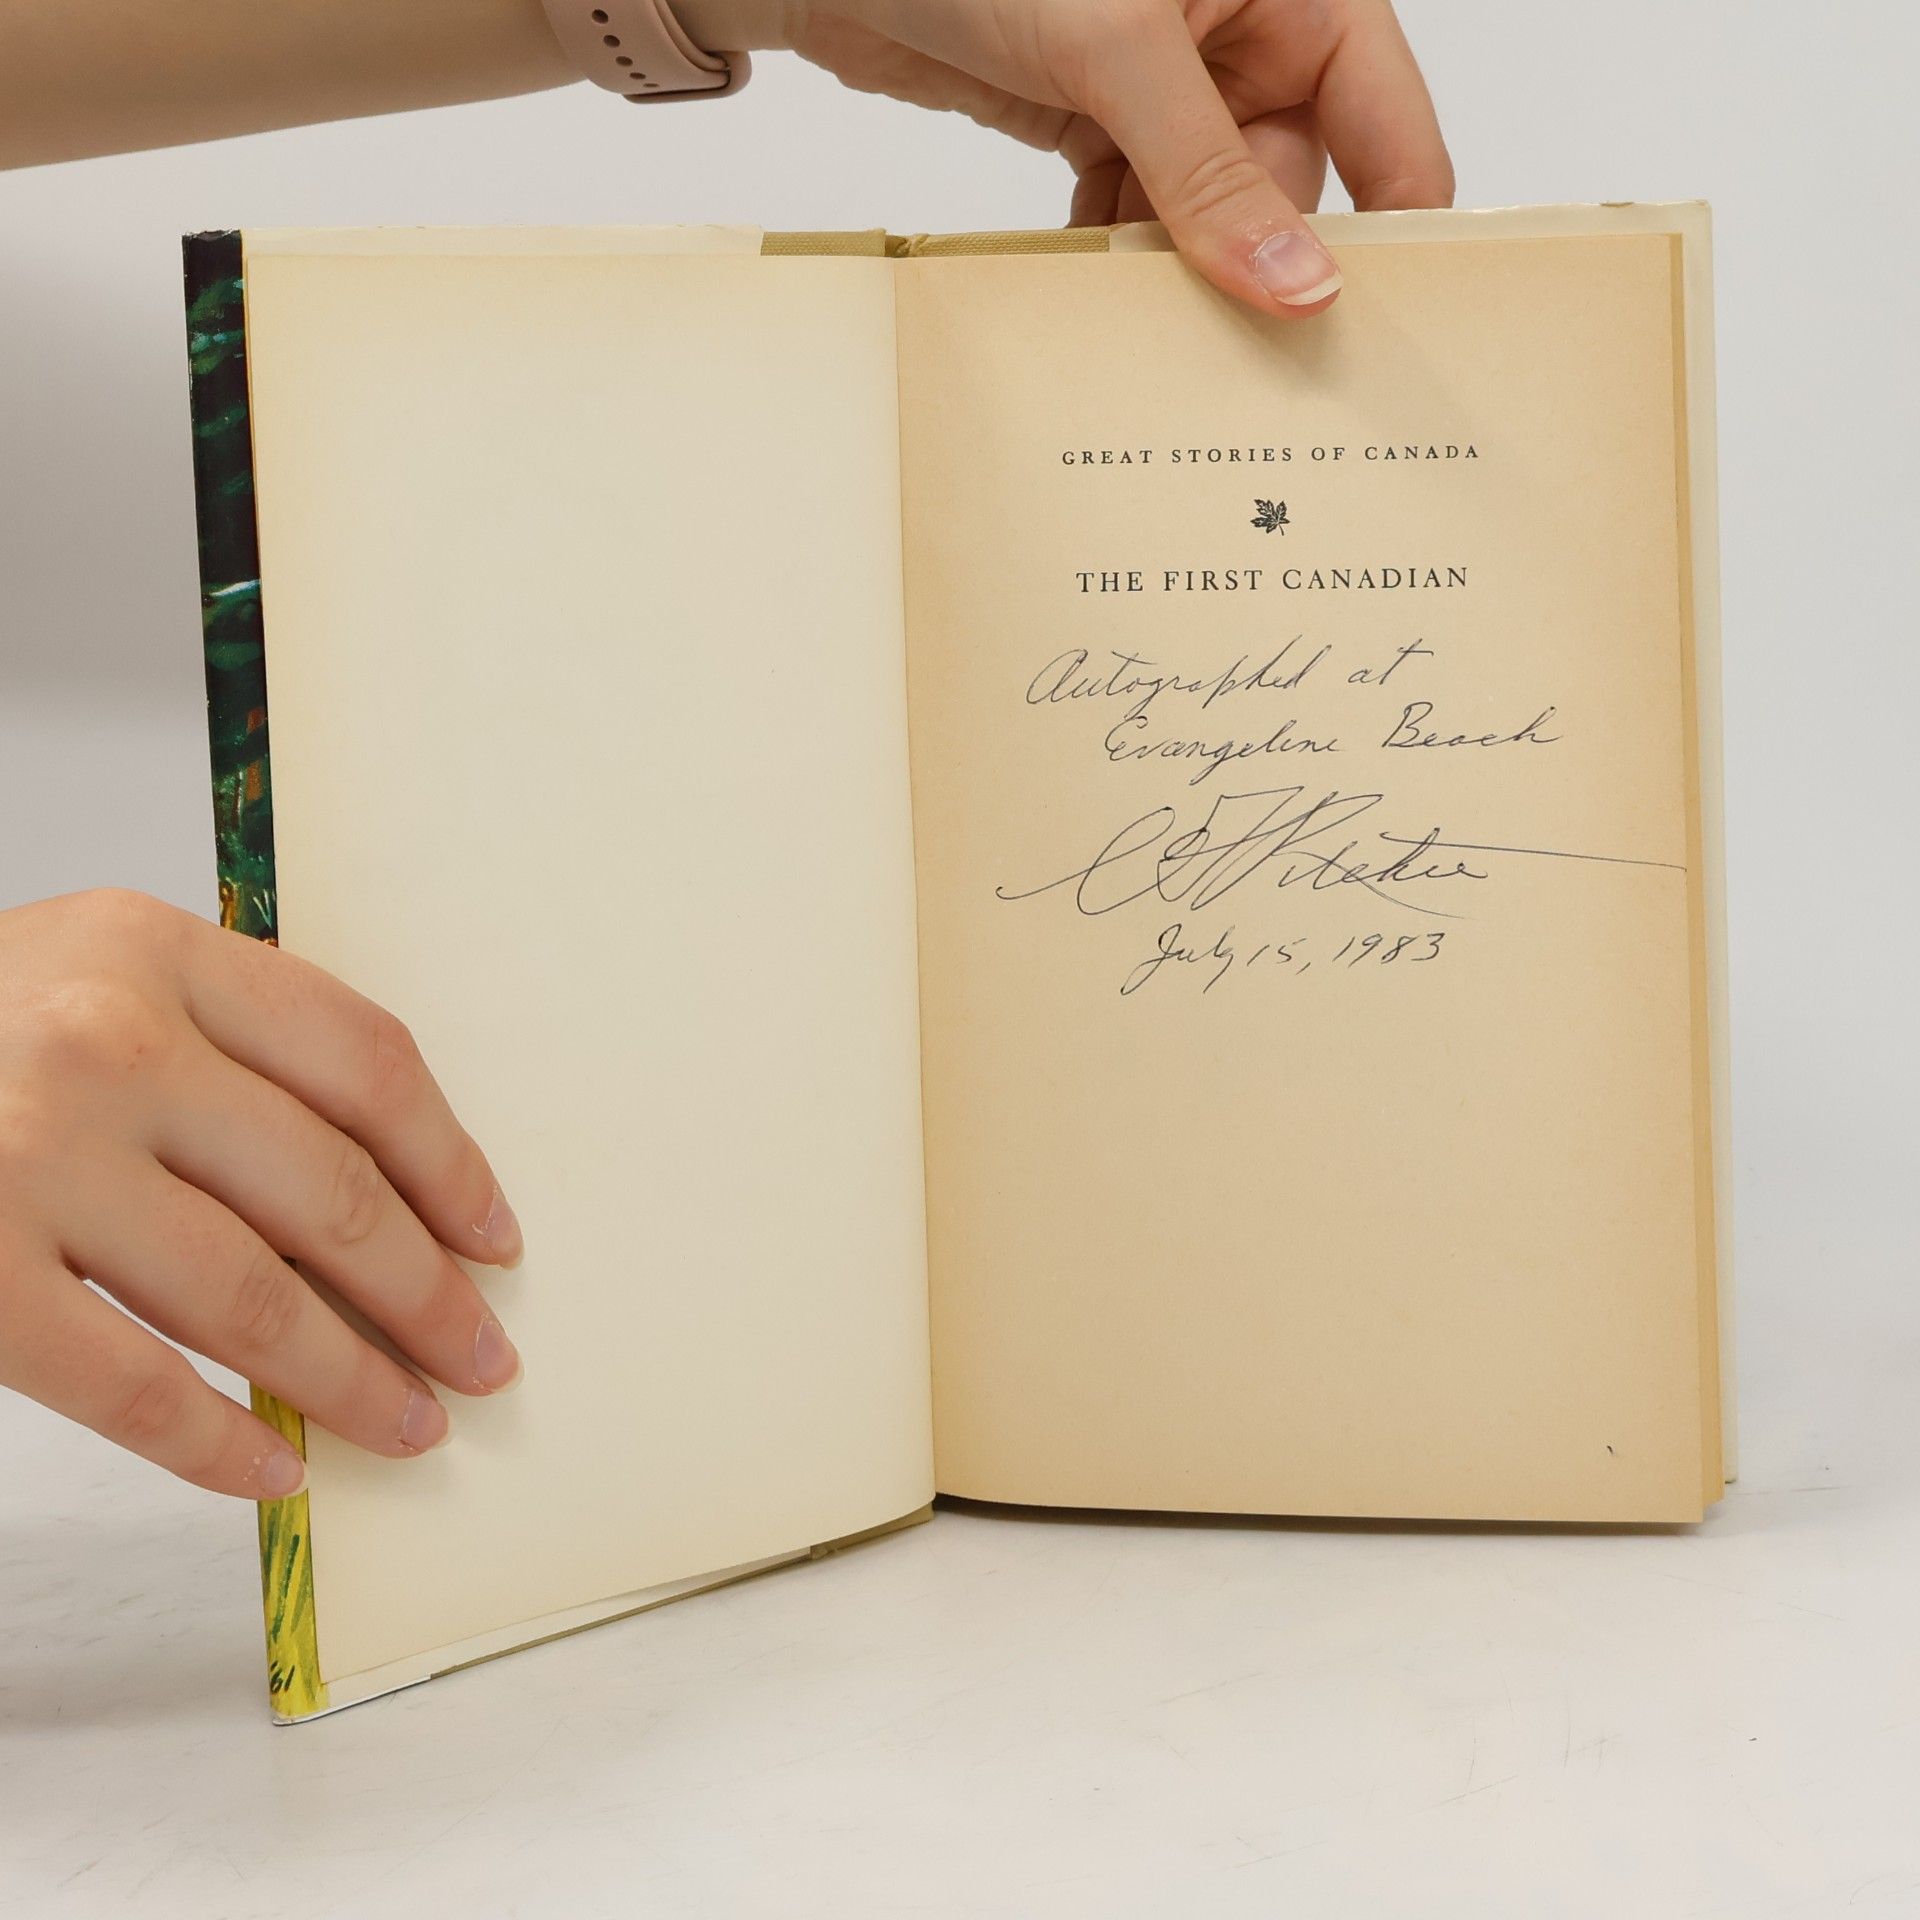 GREAT STORIES OF CANADA
THE FIRST CANADIAN
Autographed at
Evangeline Beach
C T Ritchie
July 15, 1983
'61